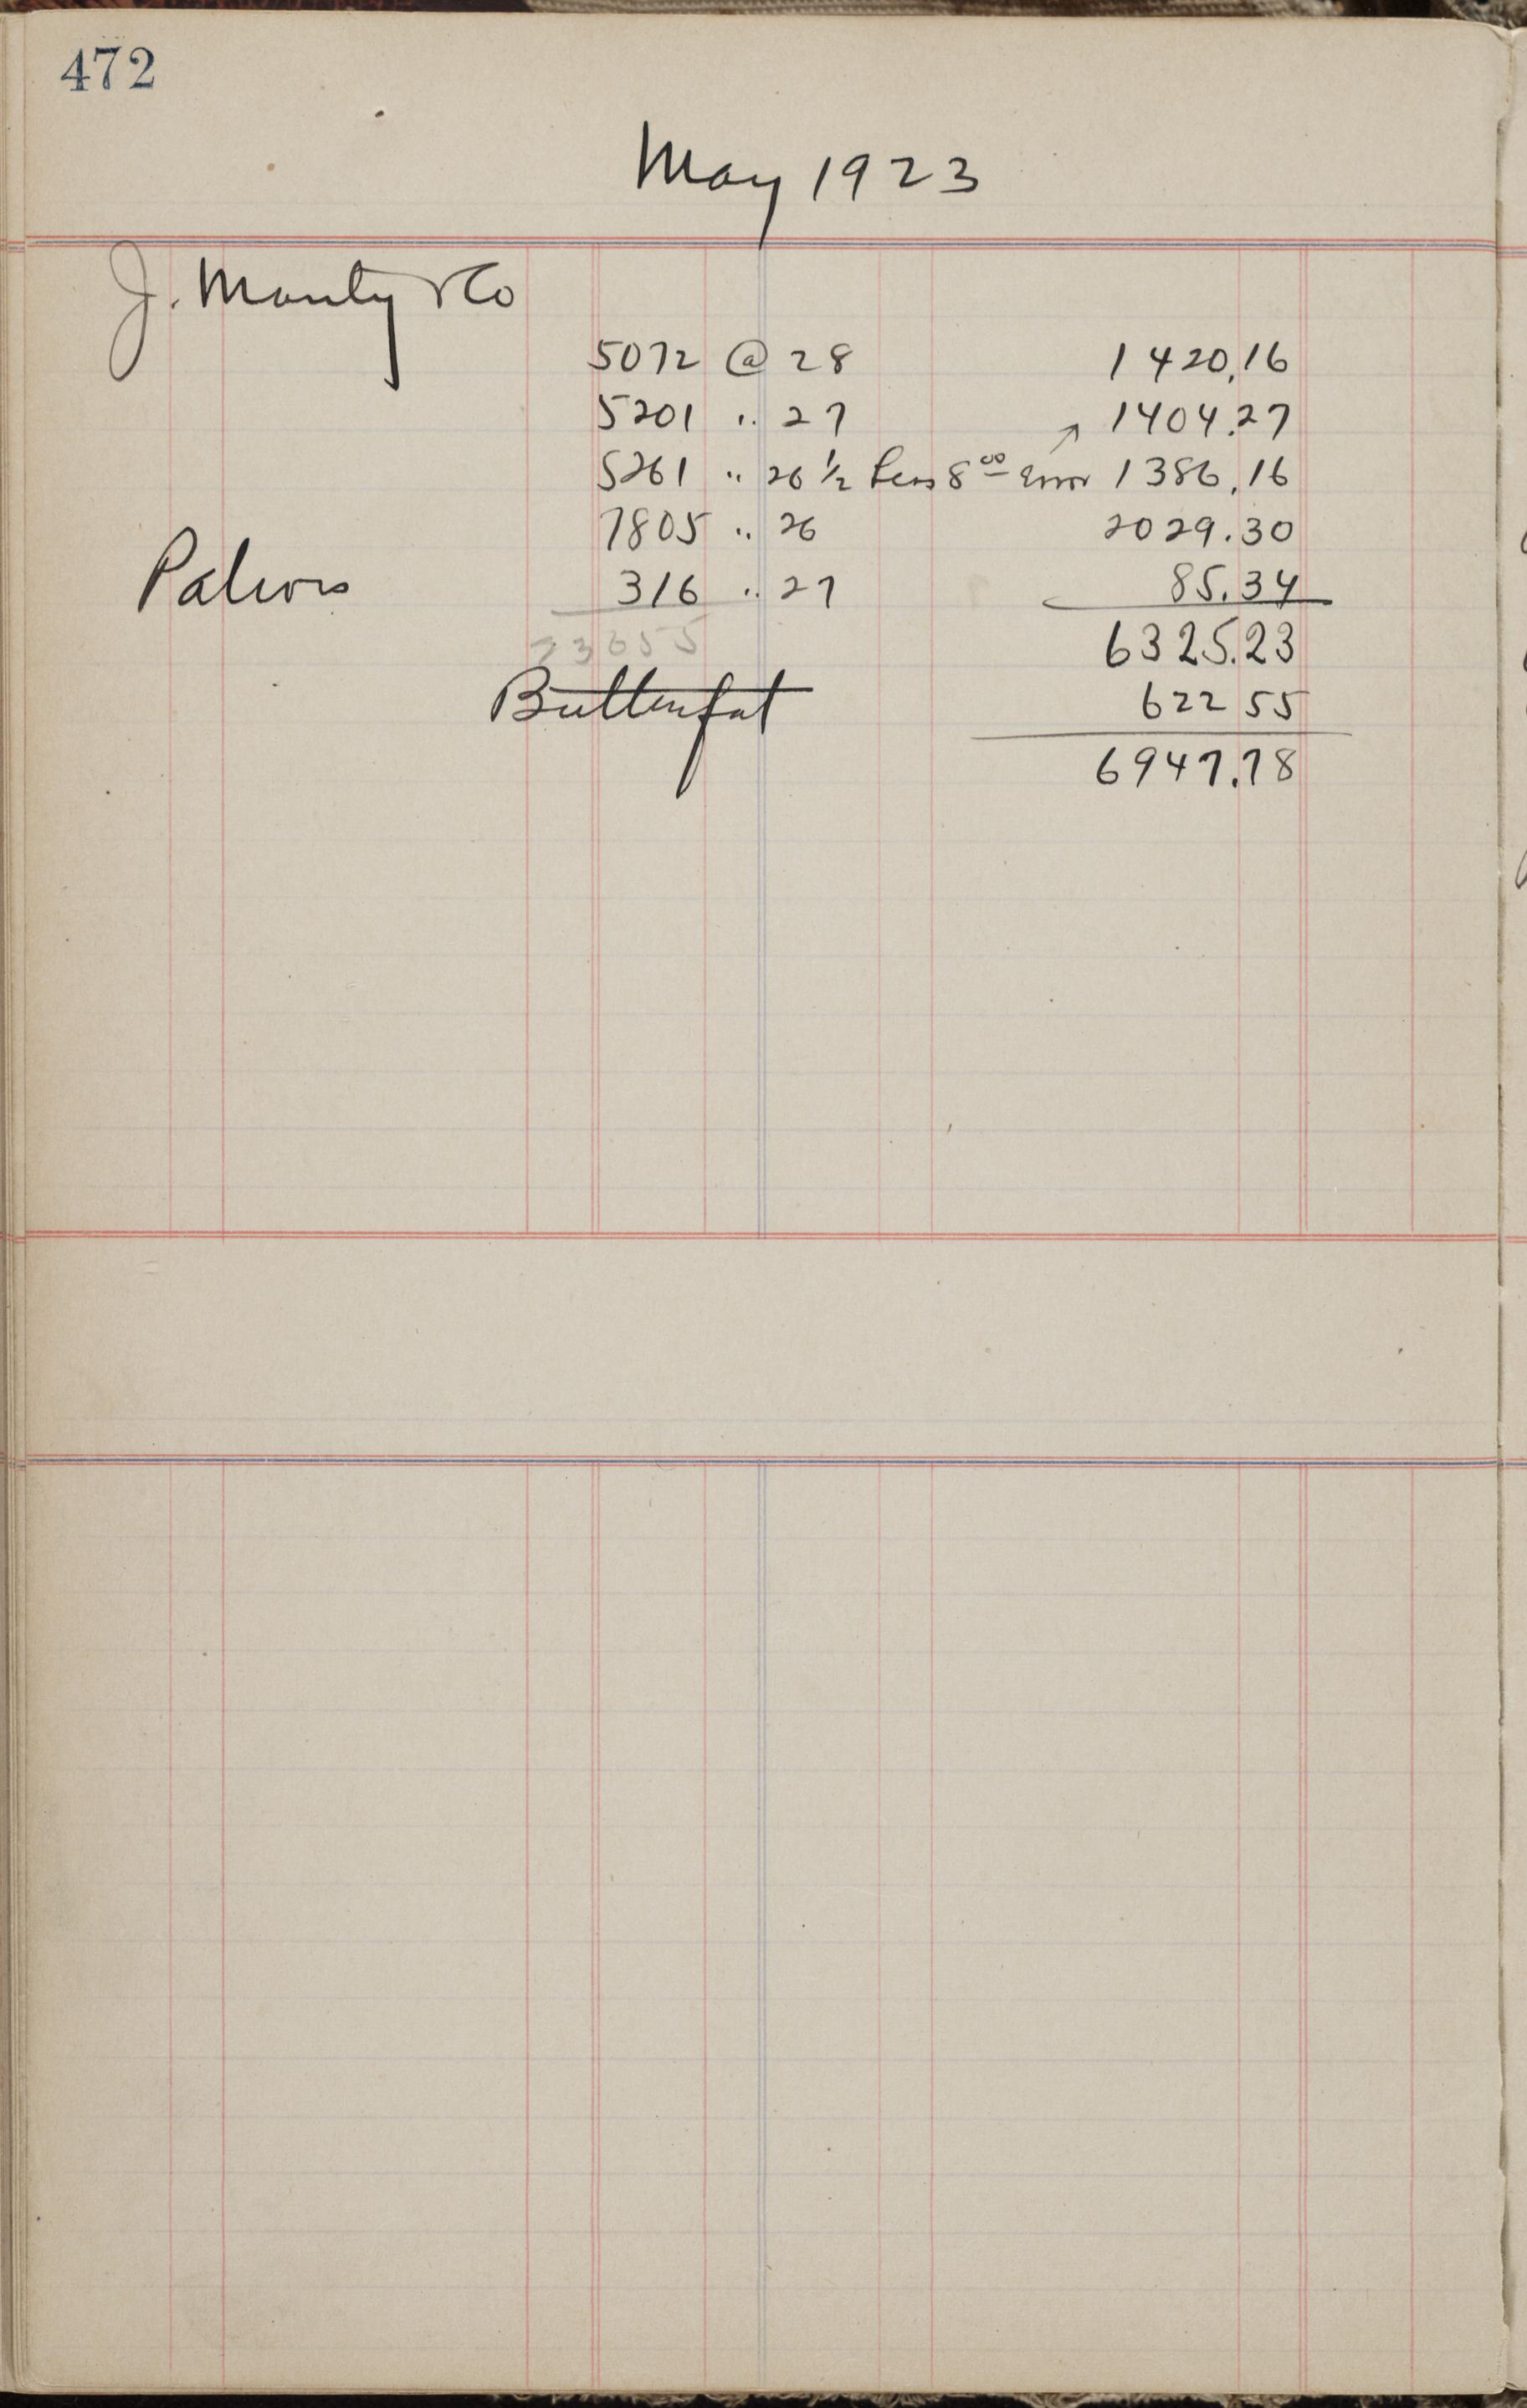 472
May 1923
J. Monty & Co
5072 @ 28 1420.16
5201 " 27 1404.27
5261 " 26 1/2 Less 8 00 Error 1386.16
7805 " 26 2029.30
Patrons 316 " 27 85.34
23655 6325.23
Butterfat 622 55
6947.78